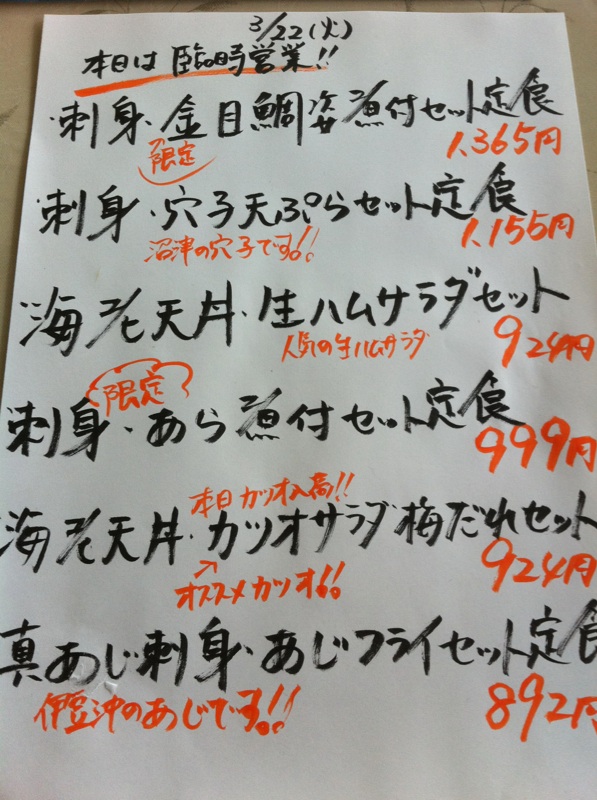 3/22(火)
本日は臨時営業!!
刺身・金目鯛姿煮付セット定食
限定
1,365円
刺身・穴子天ぷらセット定食
沼津の穴子です!!
1,155円
海老天丼・生ハムサラダセット
人気の生ハムサラダ
924円
限定
刺身・あら煮付セット定食
999円
本日カツオ入荷!!
海老天丼・カツオサラダ梅だれセット
オススメカツオ!!
924円
真あじ刺身・あじフライセット定食
伊豆沖のあじです!!
892円